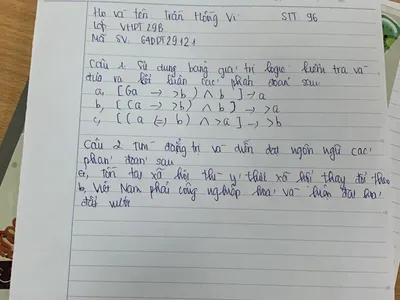 Họ và tên Trần Hồng Vi STT 96
Lớp VHPT29B
Mã SV. 64DPT29121
Câu 1. Sử dụng bảng giá trị logic kiểm tra và
đưa ra kết luận các phán đoán sau
a, [(a → >b) ∧ b] → a
b, [(a → >b) ∧ b] → >a
c, [(a (=) b) ∧ >a] → >b
Câu 2 Tìm đẳng trị và diễn đạt ngôn ngữ các
phán đoán sau
a, Tồn tại xã hội thì ý thức xã hội thay đổi theo
b, Việt Nam phải công nghiệp hóa và hiện đại hóa
đất nước